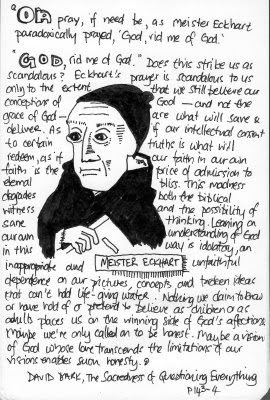 "Oh pray, if need be, as Meister Eckhart
paradoxically prayed, 'God, rid me of God.'
"God, rid me of God." Does this strike us as
scandalous? Eckhart's prayer is scandalous to us
only to the extent that we still believe our
conceptions of God — and not the
grace of God — are what will save &
deliver. As if our intellectual consent
to certain truths is what will
redeem, as if our faith in our own
faith is the price of admission to
eternal bliss. This madness
degrades both the biblical
witness and the possibility of
sane thinking. Leaning on
our own understanding of God
in this way is idolatry, an
inappropriate and unfaithful
MEISTER ECKHART
dependence on our pictures, concepts and broken ideas
that can't hold life-giving water. Nothing we claim to know
or have hold of or pretend to believe as children or as
adults places us on the winning side of God's affections.
Maybe we're only called on to be honest. Maybe a vision
of God whose love transcends the limitations of our
visions enables such honesty.
DAVID DARK, The Sacredness of Questioning Everything
P143-4